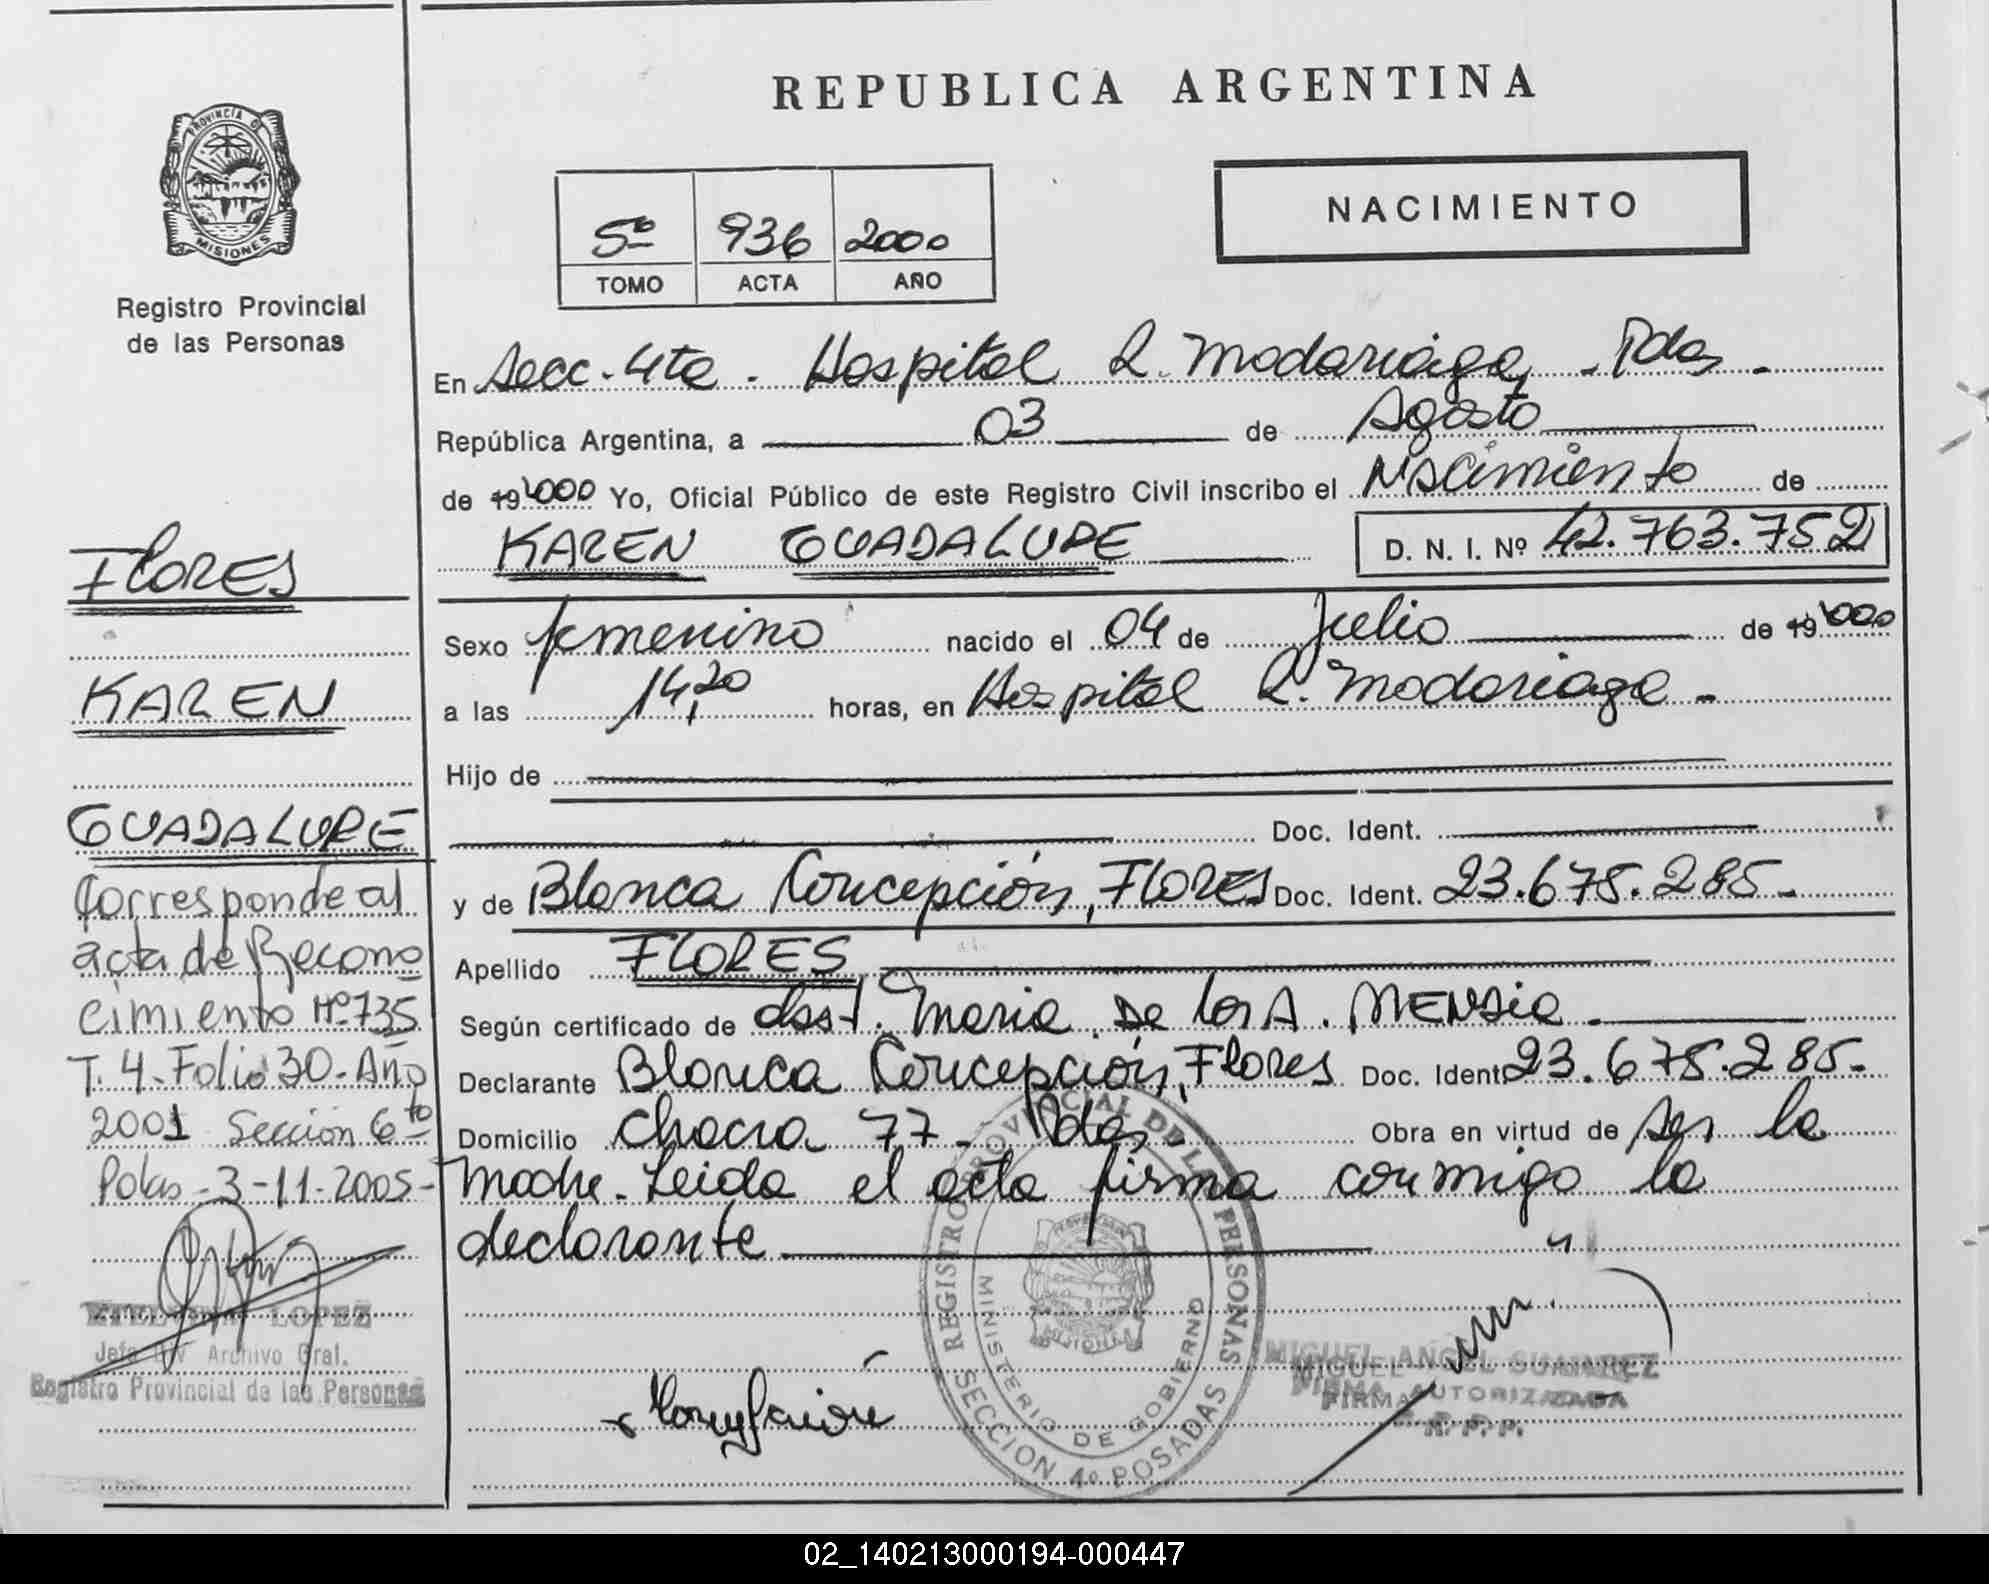 REPUBLICA ARGENTINA
PROVINCIA D
MISIONES
Registro Provincial
de las Personas
5º 936 2000
TOMO ACTA AÑO
NACIMIENTO
En Secc. 4ta. Hospital R. Madariaga - Pdas -
República Argentina, a 03 de Agosto
de 192000 Yo, Oficial Público de este Registro Civil inscribo el Nacimiento de
KAREN GUADALUPE D. N. I. Nº 42.763.752
Sexo femenino nacido el 04 de Julio de 192000
a las 14,20 horas, en Hospital R. Madariaga -
Hijo de
Doc. Ident.
y de Blanca Concepción, FLORES Doc. Ident. 23.675.285-
Apellido FLORES
Según certificado de obst. Maria De los A. MENDia.
Declarante Blanca Concepción, Flores Doc. Ident. 23.675.285-
Domicilio Chacra 77- Pdas- Obra en virtud de ser la
madre. Leida el acta firma conmigo la
declarante
FLORES
KAREN
GUADALUPE
Corresponde al
acta de Recono
cimiento Nº 735
T. 4-Folio 30-Año
2001 Sección 6to
Pdas-3-11-2005-
LOPEZ
Jefe Div Archivo Gral.
Registro Provincial de las Personas
REGISTRO PROVINCIAL DE LAS PERSONAS
MINISTERIO DE GOBIERNO
MISIONES
SECCION 4º POSADAS
MIGUEL ANGEL SUAREZ
FIRMA AUTORIZADA
R. P. P.
02_140213000194-000447